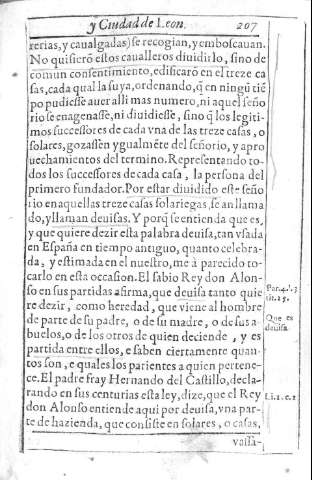 y Ciudad de Leon. 207
rerias, y caualgadas) se recogian, y emboscauan.
No quisierõ estos caualleros diuidirlo, sino de
comun consentimiento, edificarõ en el treze ca
sas, cada qual la suya, ordenando, q̃ en ningũ tiẽ
po pudiesse auer alli mas numero, ni aquel seño
rio se enagenasse, ni diuidiesse, sino q̃ los legiti
mos successores de cada vna de las treze casas, o
solares, gozassen ygualmẽte del señorio, y apro
uechamientos del termino. Representando to-
dos los successores de cada casa, la persona del
primero fundador. Por estar diuidido este seño
rio en aquellas treze casas solariegas, se an llama
do, y llaman deuisas. Y porq̃ se entienda que es,
y que quiere dezir esta palabra deuisa, tan vsada
en España en tiempo antiguo, quanto celebra-
da, y estimada en el nuestro, me à parecido to-
carlo en esta occasion. El sabio Rey don Alon-
so en sus partidas afirma, que deuisa tanto quie
re dezir, como heredad, que viene al hombre
de parte de su padre, o de su madre, o de sus a-
buelos, o de los otros de quien deciende, y es
partida entre ellos, e saben ciertamente quan-
tos son, e quales los parientes a quien pertene-
ce. El padre fray Hernando del Castillo, decla-
rando en sus centurias esta ley, dize, que el Rey
don Alonso entiende aqui por deuisa, vna par-
te de hazienda, que consiste en solares, o casas,
vassa-
Par. 4. l. 3
tit. 25.
Que es
deuisa.
Li. 1. c. 1